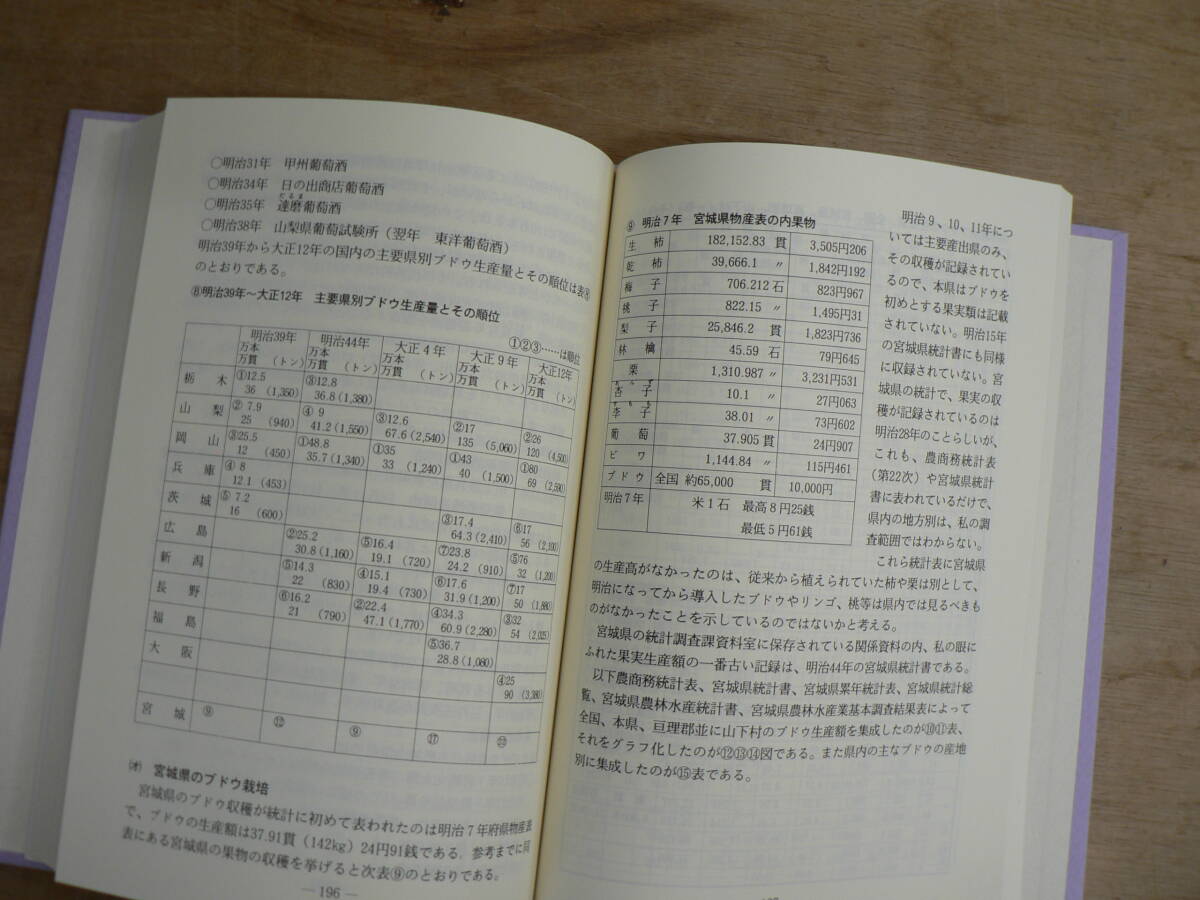 ○明治31年　甲州葡萄酒
○明治34年　日の出商店葡萄酒
だるま
○明治35年　達磨葡萄酒
○明治38年　山梨県葡萄試験所（翌年　東洋葡萄酒）
明治39年から大正12年の国内の主要県別ブドウ生産量とその順位は表⑧
のとおりである。
⑧明治39年～大正12年　主要県別ブドウ生産量とその順位
①②③……は順位
明治39年　明治44年　大正４年　大正９年　大正12年
万本　万本　万本　万本　万本
万貫　（トン）　万貫　（トン）　万貫　（トン）　万貫　（トン）　万貫　（トン）
栃　木　①12.5　③12.8
36　(1,350)　36.8 (1,380)
山　梨　② 7.9　④ 9　③12.6　②17　②26
25　(940)　41.2 (1,550)　67.6 (2,540)　135　(5,060)　120　(4,500)
岡　山　③25.5　①48.8　①35　①43　①80
12　(450)　35.7 (1,340)　33　(1,240)　40　(1,500)　69　(2,590)
兵　庫　④ 8
12.1　(453)
茨　城　⑤ 7.2　③17.4　⑥17
16　(600)　64.3 (2,410)　56　(2,100)
広　島　②25.2　⑤16.4　⑦23.8　⑤76
30.8 (1,160)　19.1　(720)　24.2　(910)　32　(1,200)
新　潟　⑤14.3　④15.1　⑥17.6　⑦17
22　(830)　19.4　(730)　31.9 (1,200)　50　(1,880)
長　野　⑥16.2　②22.4　④34.3　③32
21　(790)　47.1 (1,770)　60.9 (2,280)　54　(2,025)
福　島　⑤36.7
28.8 (1,080)
大　阪　④25
90　(3,380)
宮　城　⑨　⑫　⑨　⑰
㈺　宮城県のブドウ栽培
宮城県のブドウ収穫が統計に初めて表われたのは明治７年府県物産表
で、ブドウの生産額は37.91貫（142kg）24円91銭である。参考までに同
表にある宮城県の果物の収穫を挙げると次表⑨のとおりである。
― 196 ―
⑨　明治７年　宮城県物産表の内果物
生　柿　182,152.83　貫　3,505円206
乾　柿　39,666.1　〃　1,842円192
梅　子　706.212 石　823円967
桃　子　822.15　〃　1,495円31
梨　子　25,846.2　貫　1,823円736
林　檎　45.59　石　79円645
栗　1,310.987　〃　3,231円531
杏　子　10.1　〃　27円063
すもも
李　子　38.01　〃　73円602
葡　萄　37.905 貫　24円907
ビ　ワ　1,144.84　〃　115円461
ブ　ド　ウ　全国　約65,000　貫　10,000円
明治７年　米１石　最高８円25銭
最低５円61銭
明治９、10、11年につ
いては主要産出県のみ、
その収穫が記録されてい
るので、本県はブドウを
初めとする果実類は記載
されていない。明治15年
の宮城県統計書にも同様
に収録されていない。宮
城県の統計で、果実の収
穫が記録されているのは
明治28年のことらしいが、
これも、農商務統計表
（第22次）や宮城県統計
書に表われているだけで、
県内の地方別は、私の調
査範囲ではわからない。
これら統計表に宮城県
の生産高がなかったのは、従来から植えられていた柿や栗は別として、
明治になってから導入したブドウやリンゴ、桃等は県内では見るべきも
のがなかったことを示しているのではないかと考える。
宮城県の統計調査課資料室に保存されている関係資料の内、私の眼に
ふれた果実生産額の一番古い記録は、明治44年の宮城県統計書である。
以下農商務統計表、宮城県統計書、宮城県累年統計表、宮城県統計総
覧、宮城県農林水産統計書、宮城県農林水産業基本調査結果表によって
全国、本県、亘理郡並に山下村のブドウ生産額を集成したのが⑩⑪表、
それをグラフ化したのが⑫⑬⑭図である。また県内の主なブドウの産地
別に集成したのが⑮表である。